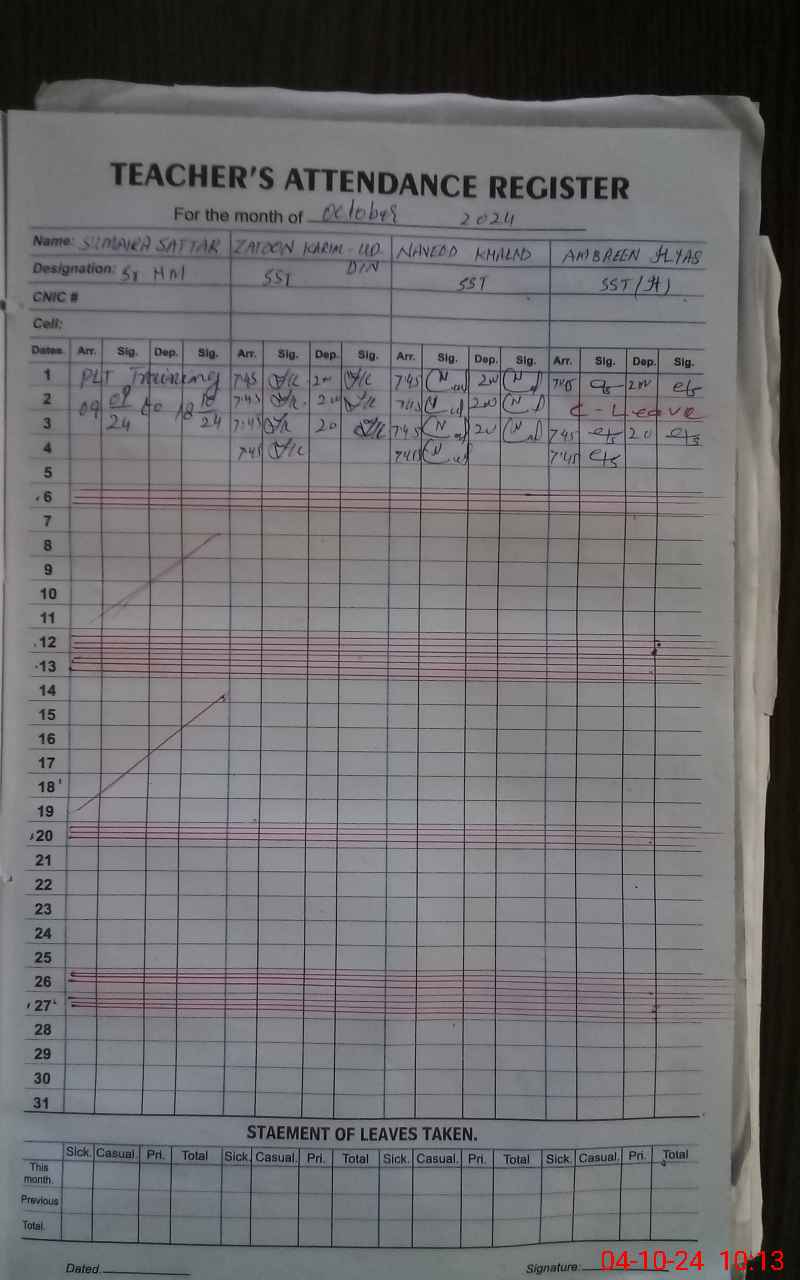 TEACHER'S ATTENDANCE REGISTER
For the month of October 2024
Name: SUMAIRA SATTAR ZAIDON KARIM-UD DIN NAVEDD KHALND AMBREEN ILYAS
Designation: SST SST SST (H)
CNIC #
Cell:
Dates. Arr. Sig. Dep. Sig. Arr. Sig. Dep. Sig. Arr. Sig. Dep. Sig. Arr. Sig. Dep. Sig.
1 PLT Training 7:45 7:45 7:45
2 7:45 7:45 C-Leave
3 7:45 20 7:45 20 7:45 20
4 7:45 7:45 7:45
5
6
7
8
9
10
11
12
13
14
15
16
17
18
19
20
21
22
23
24
25
26
27
28
29
30
31
STAEMENT OF LEAVES TAKEN.
Sick. Casual. Pri. Total Sick. Casual. Pri. Total Sick. Casual. Pri. Total Sick. Casual. Pri. Total
This month.
Previous
Total.
Dated. Signature:
04-10-24 10:13